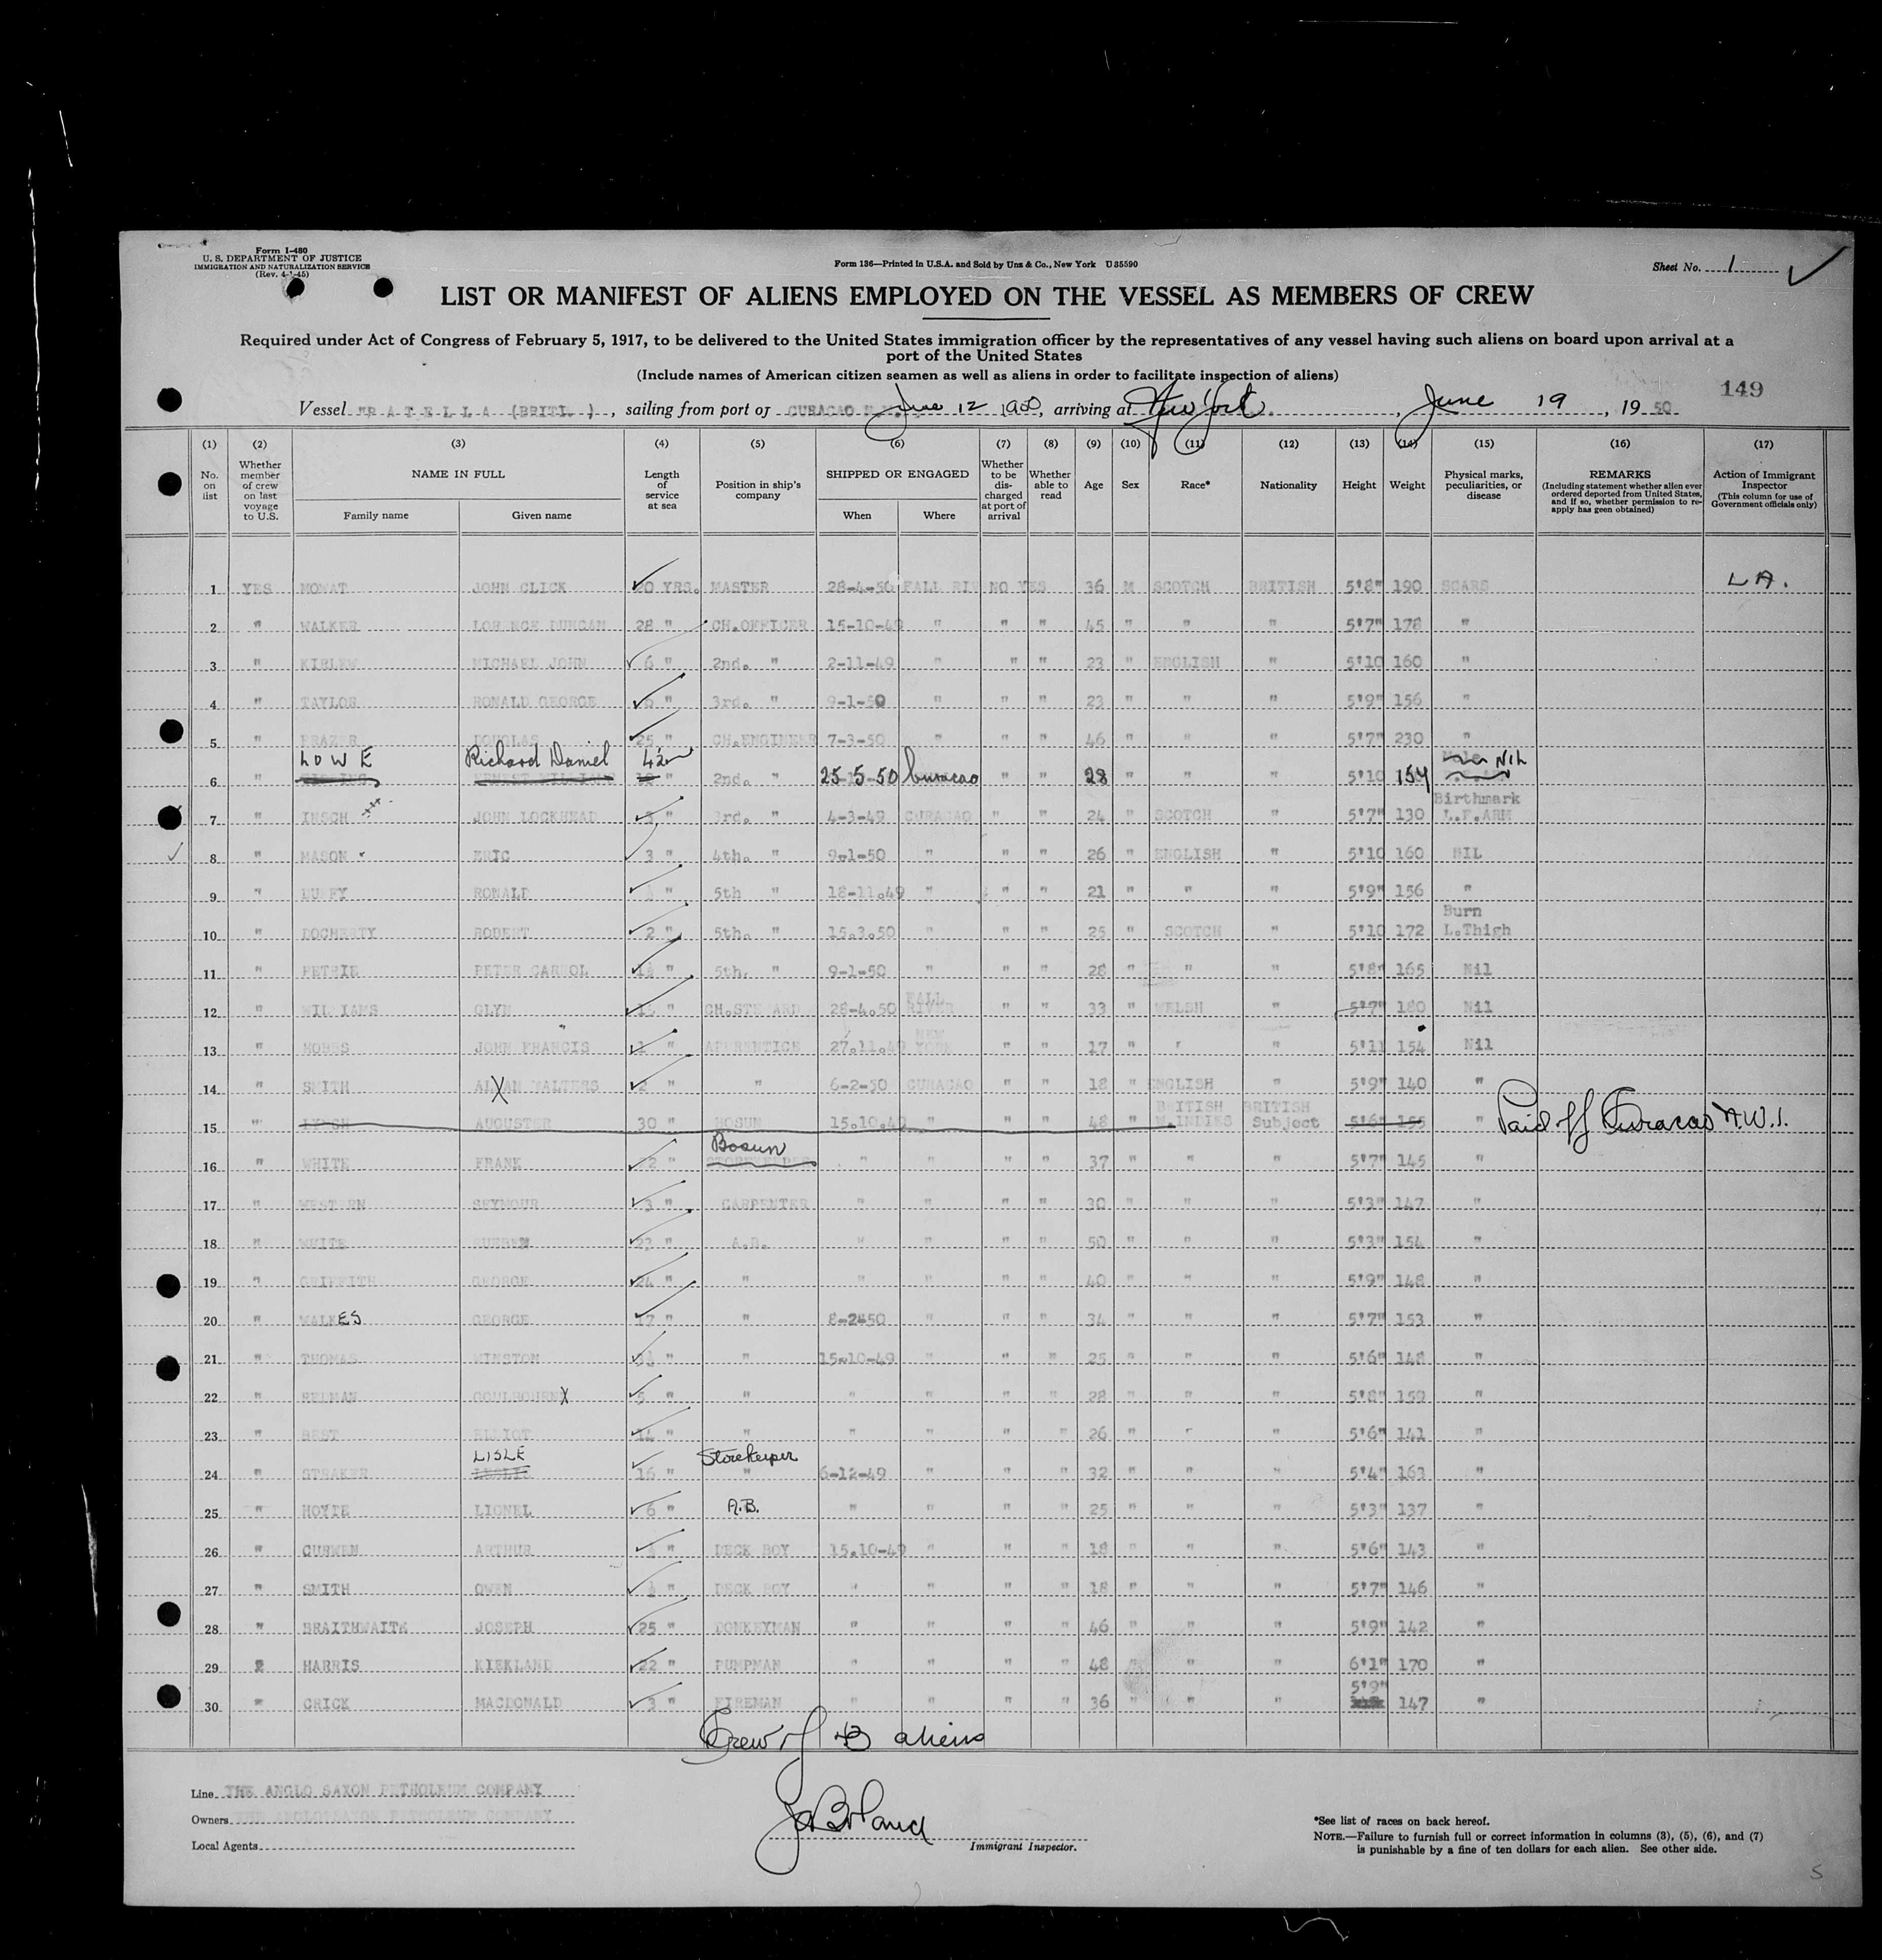 Form I-480
U. S. DEPARTMENT OF JUSTICE
IMMIGRATION AND NATURALIZATION SERVICE
(Rev. 4-1-45)
Form 136—Printed in U.S.A. and Sold by Unz & Co., New York U 35590
Sheet No. 1
LIST OR MANIFEST OF ALIENS EMPLOYED ON THE VESSEL AS MEMBERS OF CREW
Required under Act of Congress of February 5, 1917, to be delivered to the United States immigration officer by the representatives of any vessel having such aliens on board upon arrival at a
port of the United States
(Include names of American citizen seamen as well as aliens in order to facilitate inspection of aliens)
149
Vessel (BRIT), sailing from port of CURACAO June 12 1950, arriving at New York, June 19, 1950
(1) (2) (3) (4) (5) (6) (7) (8) (9) (10) (11) (12) (13) (14) (15) (16) (17)
No. on list
Whether member of crew on last voyage to U.S.
NAME IN FULL
Family name Given name
Length of service at sea
Position in ship's company
SHIPPED OR ENGAGED
When Where
Whether to be discharged at port of arrival
Whether able to read
Age Sex Race* Nationality Height Weight
Physical marks, peculiarities, or disease
REMARKS
(Including statement whether alien ever ordered deported from United States, and if so, whether permission to re-apply has geen obtained)
Action of Immigrant Inspector
(This column for use of Government officials only)
1 YES MOWAT JOHN CLICK 20 YRS. MASTER 28-4-50 FALL RIV NO YES 36 M SCOTCH BRITISH 5'8" 190 SCARS L A.
2 " WALKER DUNCAN 28 " CH.OFFICER 15-10-49 " " " 45 " " " 5'7" 178 "
3 " KIRLEW MICHAEL JOHN 6 " 2nd. " 2-11-49 " " " 23 " ENGLISH " 5'10 160 "
4 " TAYLOR RONALD GEORGE 6 " 3rd. " 9-1-50 " " " 23 " " " 5'9" 156 "
5 " FRAZER DOUGLAS 25 " CH.ENGINEER 7-3-50 " " " 46 " " " 5'7" 230 "
6 " LOWE Richard Daniel 2nd. " 25-5-50 Curacao " " 28 " " " 5'10 154 NIL
7 " INSCH JOHN LOCKHEAD 3 " 3rd. " 4-3-49 CURACAO " " 24 " SCOTCH " 5'7" 130 Birthmark L.F.ARM
8 " MASON ERIC 3 " 4th. " 9-1-50 " " " 26 " ENGLISH " 5'10 160 NIL
9 " DUFFY RONALD " 5th " 18-11.49 " " " 21 " " " 5'9" 156 "
10 " DOCHERTY ROBERT 2 " 5th. " 15.3.50 " " " 25 " SCOTCH " 5'10 172 Burn L.Thigh
11 " PETRIE PETER CARROL 1½ " 5th. " 9-1-50 " " " 28 " " " 5'8" 165 Nil
12 " WILLIAMS GLYN " CH.STEWARD 28-4.50 FALL RIVER " " 33 " WELSH " 5'7" 180 Nil
13 " JOHN FRANCIS 1 " APPRENTICE 27.11.49 NEW YORK " " 17 " " " 5'11 154 Nil
14 " SMITH ALXAN WALTERS 2 " " 6-2-50 CURACAO " " 18 " ENGLISH " 5'9" 140 "
15 " LYNCH AUGUSTER 30 " BOSUN 15.10.49 " " " 48 " BRITISH W.INDIES BRITISH Subject 5'6" 155 " Paid off Curacao N.W.I.
16 " WHITE FRANK 22 " STOREKEEPER Bosun " " " " 37 " " " 5'7" 145 "
17 " WESTERN SEYMOUR 3 " CARPENTER " " " " 30 " " " 5'3" 147 "
18 " WHITE RUEBEN 23 " A.B. " " " " 50 " " " 5'3" 154 "
19 " GRIFFITH GEORGE 24 " " " " " " 40 " " " 5'9" 148 "
20 " WALKES GEORGE 17 " " 8-2-50 " " " 34 " " " 5'7" 153 "
21 " THOMAS WINSTON 3½ " " 15-10-49 " " " 25 " " " 5'6" 148 "
22 " BELMAN GOULBOURN X 5 " " " " " " 28 " " " 5'8" 159 "
23 " BEST ELLIOT 14 " " " " " " 26 " " " 5'6" 141 "
24 " SPEAKER LISLE LESLIE 16 " Storekeeper " 6-12-49 " " " 32 " " " 5'4" 163 "
25 " HOYTE LIONEL 6 " A.B. " " " " 25 " " " 5'3" 137 "
26 " CURWEN ARTHUR ½ " DECK BOY 15.10-49 " " " 18 " " " 5'6" 143 "
27 " SMITH OWEN ½ " DECK BOY " " " " 18 " " " 5'7" 146 "
28 " BRAITHWAITE JOSEPH 25 " DONKEYMAN " " " " 46 " " " 5'9" 142 "
29 " HARRIS KIRKLAND 22 " PUMPMAN " " " " 48 " " " 6'1" 170 "
30 " GRICK MACDONALD 3 " FIREMAN " " " " 36 " " " 5'9" 147 "
Crew of 43 aliens
Line THE ANGLO SAXON PETROLEUM COMPANY
Owners THE ANGLOSAXON PETROLEUM COMPANY
Local Agents
Immigrant Inspector.
*See list of races on back hereof.
NOTE.—Failure to furnish full or correct information in columns (3), (5), (6), and (7)
is punishable by a fine of ten dollars for each alien. See other side.
5